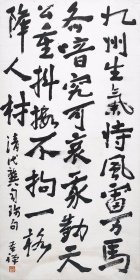 九州生氣恃風雷万馬
齊喑究可哀我勸天
公重抖擻不拘一格
降人材
清代龔自珍句